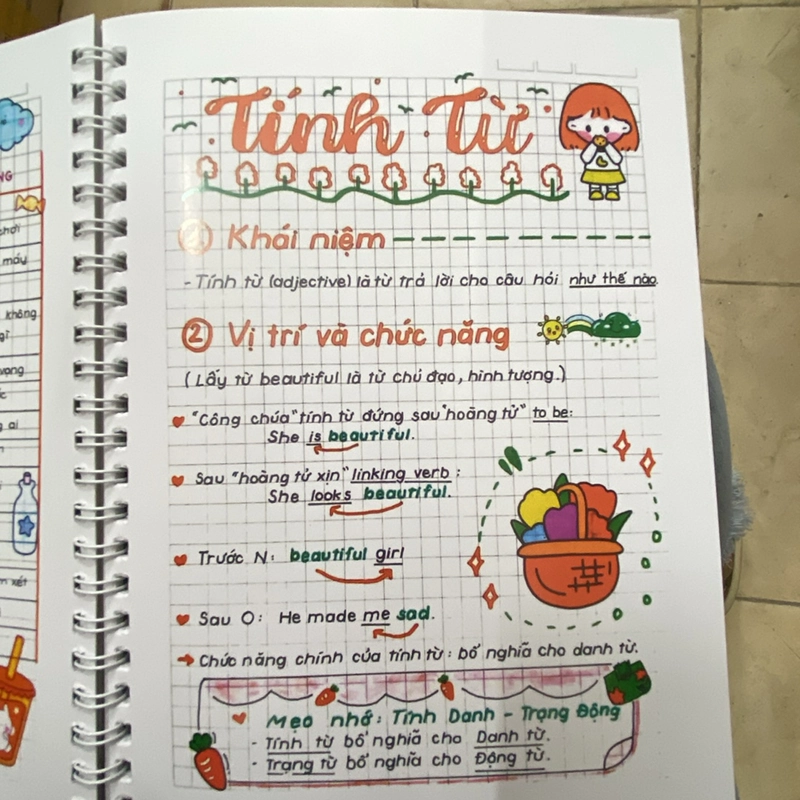 Tính Từ
1 Khái niệm
- Tính từ (adjective) là từ trả lời cho câu hỏi như thế nào.
2 Vị trí và chức năng
(Lấy từ beautiful là từ chủ đạo, hình tượng.)
"Công chúa" tính từ đứng sau "hoàng tử" to be:
She is beautiful.
Sau "hoàng tử xịn" linking verb:
She looks beautiful.
Trước N: beautiful girl
Sau O: He made me sad.
→ Chức năng chính của tính từ: bổ nghĩa cho danh từ.
Mẹo nhớ: Tính Danh - Trạng Động
- Tính từ bổ nghĩa cho Danh từ.
- Trạng từ bổ nghĩa cho Động từ.
không
ai
xét